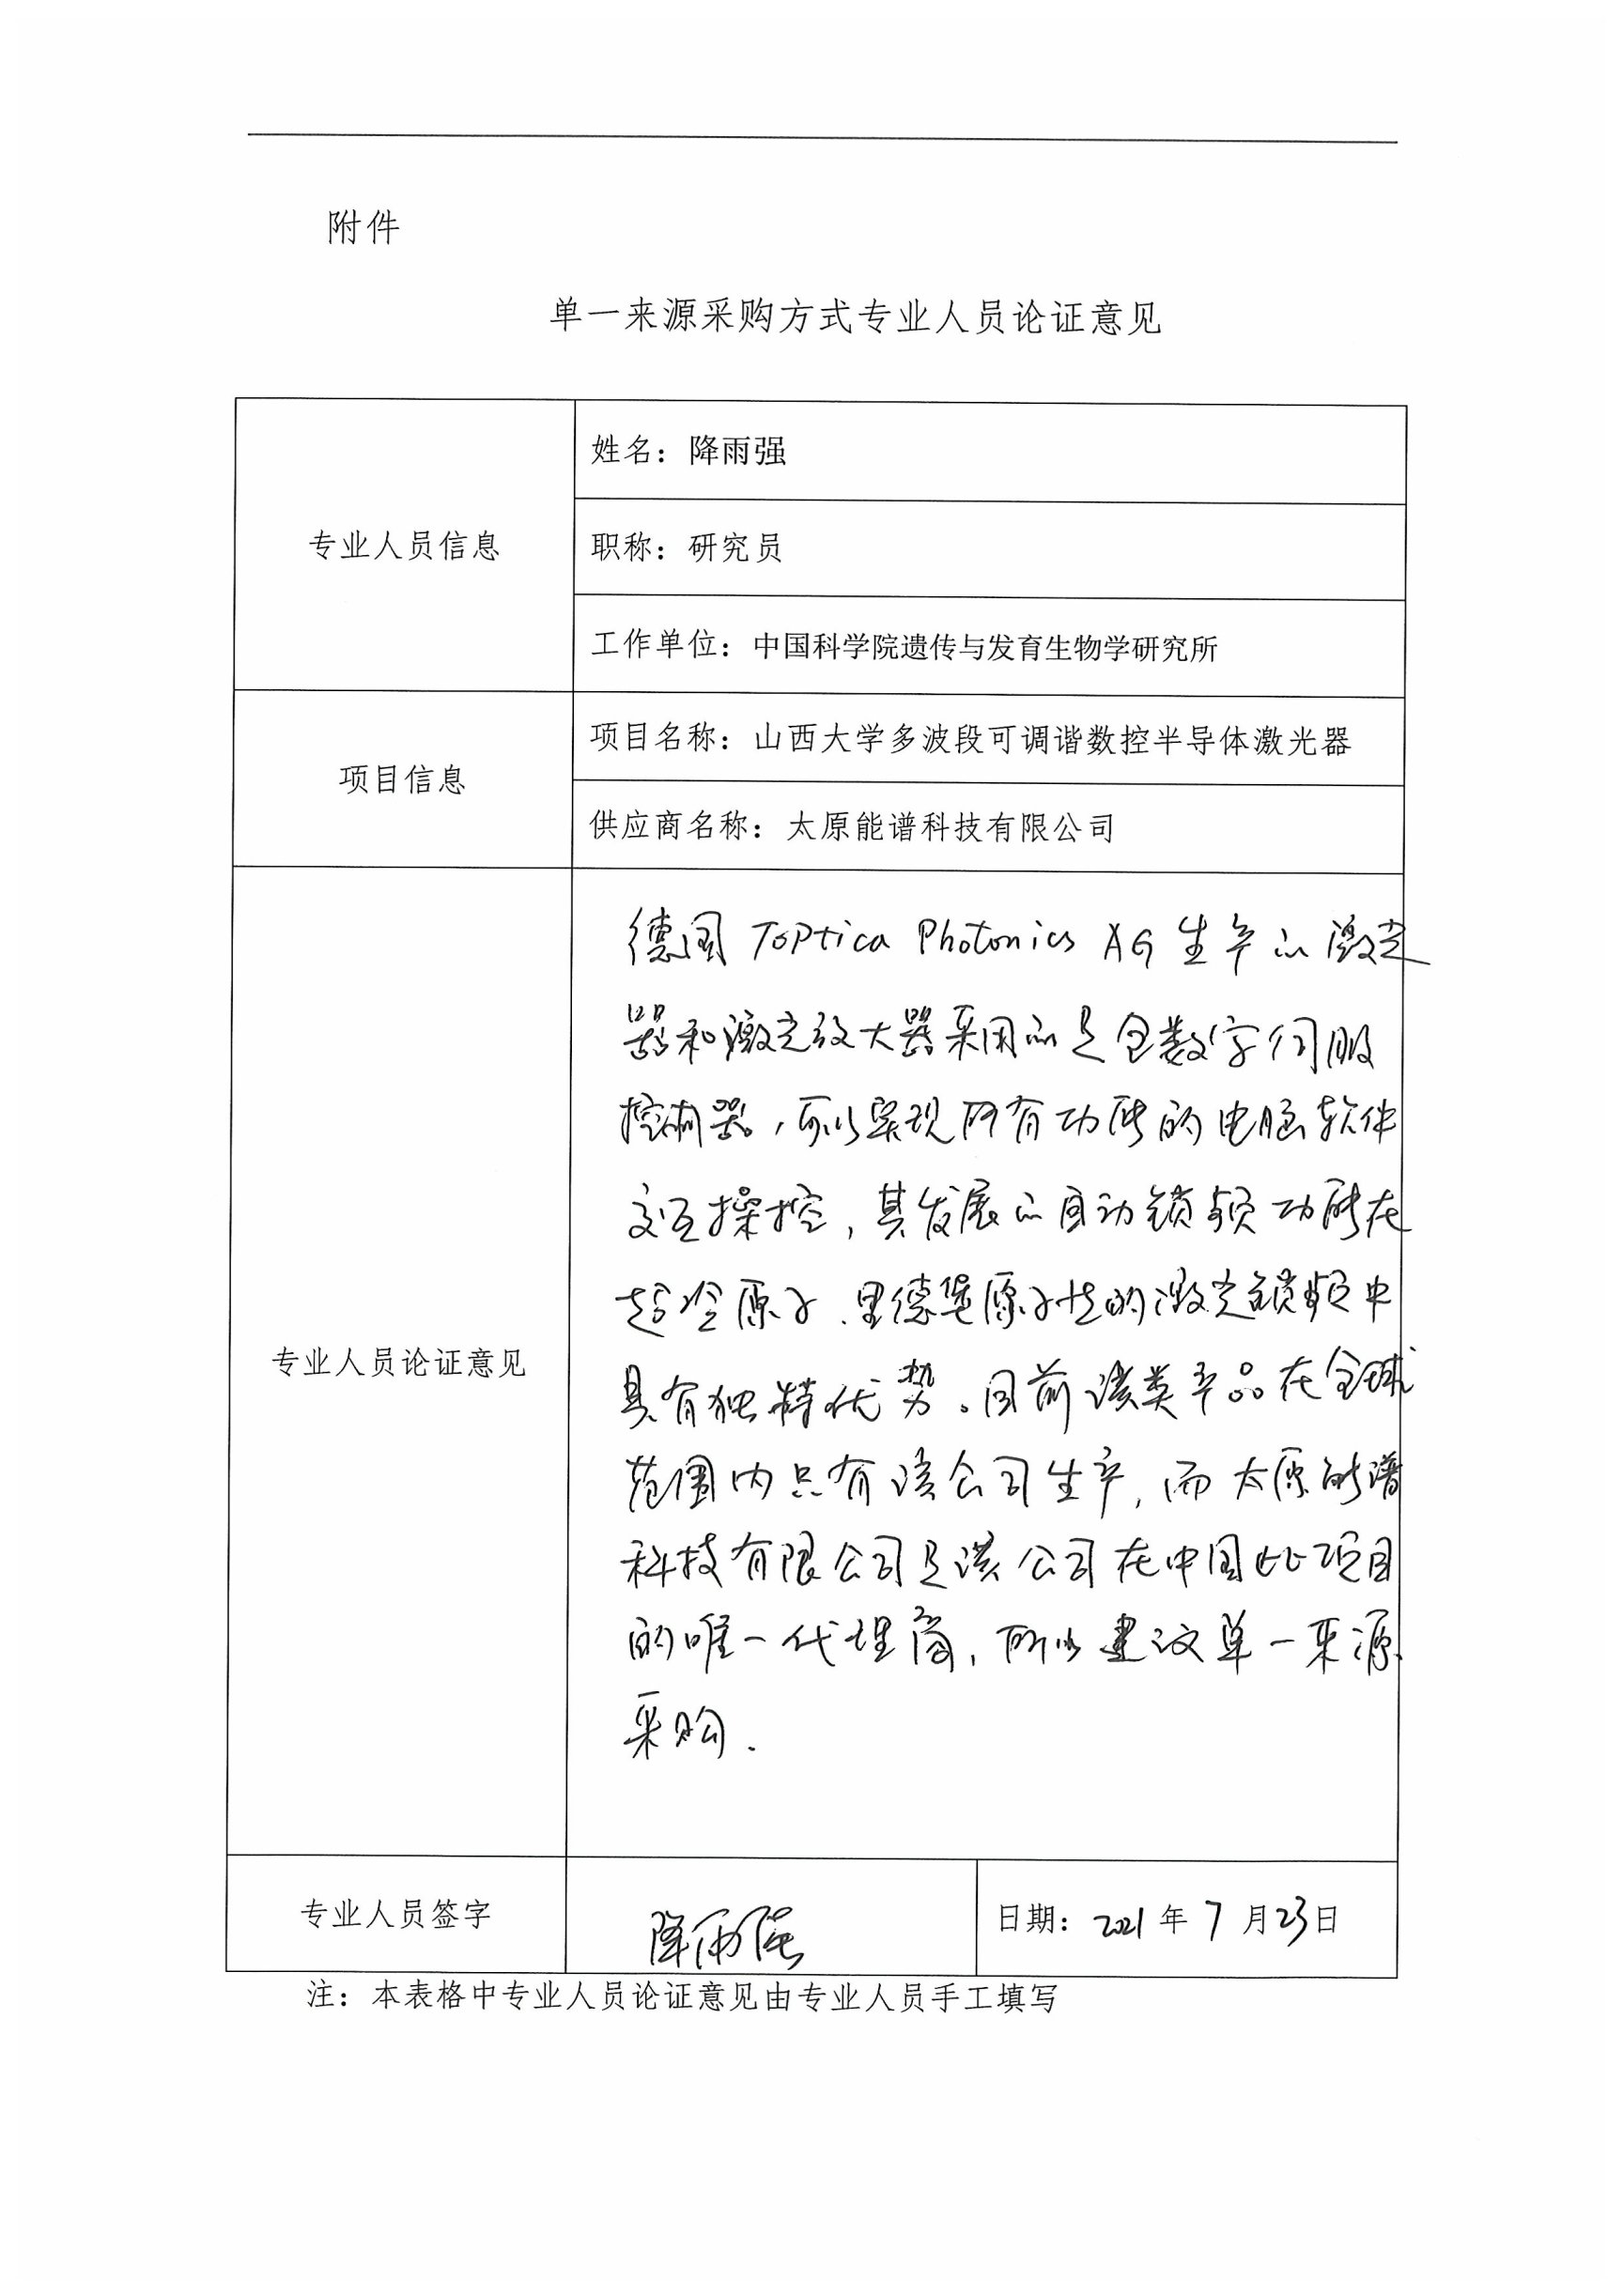 附件
单一来源采购方式专业人员论证意见
专业人员信息
姓名：降雨强
职称：研究员
工作单位：中国科学院遗传与发育生物学研究所
项目信息
项目名称：山西大学多波段可调谐数控半导体激光器
供应商名称：太原能谱科技有限公司
专业人员论证意见
德国 Toptica Photonics AG 生产的激光
器和激光放大器采用的是全数字伺服
控制器，可以实现所有功能的电脑软件
交互操控，其发展的自动锁频功能在
超冷原子、里德堡原子态的激光锁频中
具有独特优势。目前该类产品在全球
范围内只有该公司生产，而太原能谱
科技有限公司是该公司在中国此项目
的唯一代理商，所以建议单一来源
采购.
专业人员签字
降雨强
日期：2021年7月23日
注：本表格中专业人员论证意见由专业人员手工填写